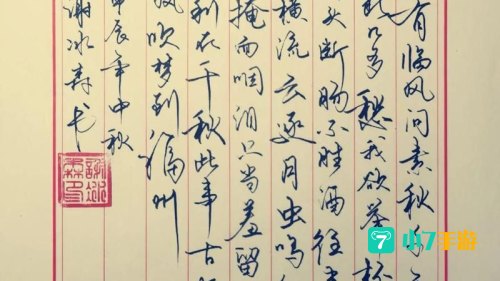 有临风问素秋
能几多愁我欲举杯
断肠不胜酒往
横流云逐月虫鸣
掩面咽泪只当羞留
在千秋此事古
吹梦到福州
甲辰年中秋
谢冰
书
小7手游